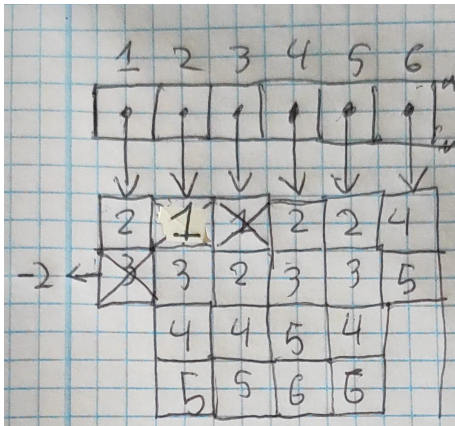 1 2 3 4 5 6
2 1 1 2 2 4
-2 ← 3 3 2 3 3 5
4 4 5 4
5 5 6 6